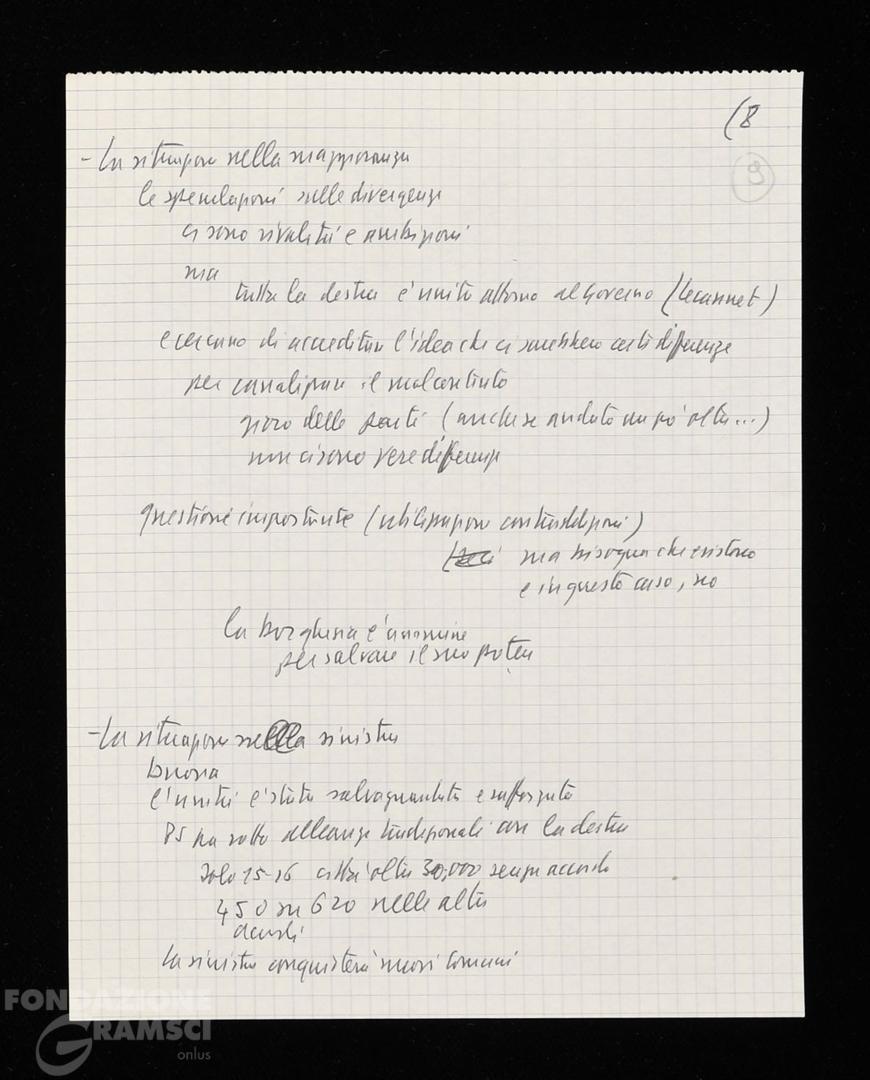 (8
9
- La situazione nella maggioranza
le speculazioni sulle divergenze
ci sono rivalità e ambizioni
ma
tutta la destra è unita attorno al Governo (Lecanuet)
e cercano di accreditare l'idea che ci sarebbero certe differenze
per canalizzare il malcontento
gioco delle parti (anche se andato un po' oltre...)
non ci sono vere differenze
questione importante (utilizzazione contraddizioni)
ma bisogna che esistano
e in questo caso, no
la borghesia è unanime
per salvare il suo potere
- La situazione nella sinistra
buona
l'unità è stata salvaguardata e rafforzata
PS ha rotto alleanze tradizionali con la destra
solo 15-16 città oltre 30,000 senza accordo
450 su 620 nelle altre
accordi
la sinistra conquisterà nuovi Comuni
FONDAZIONE
GRAMSCI
onlus